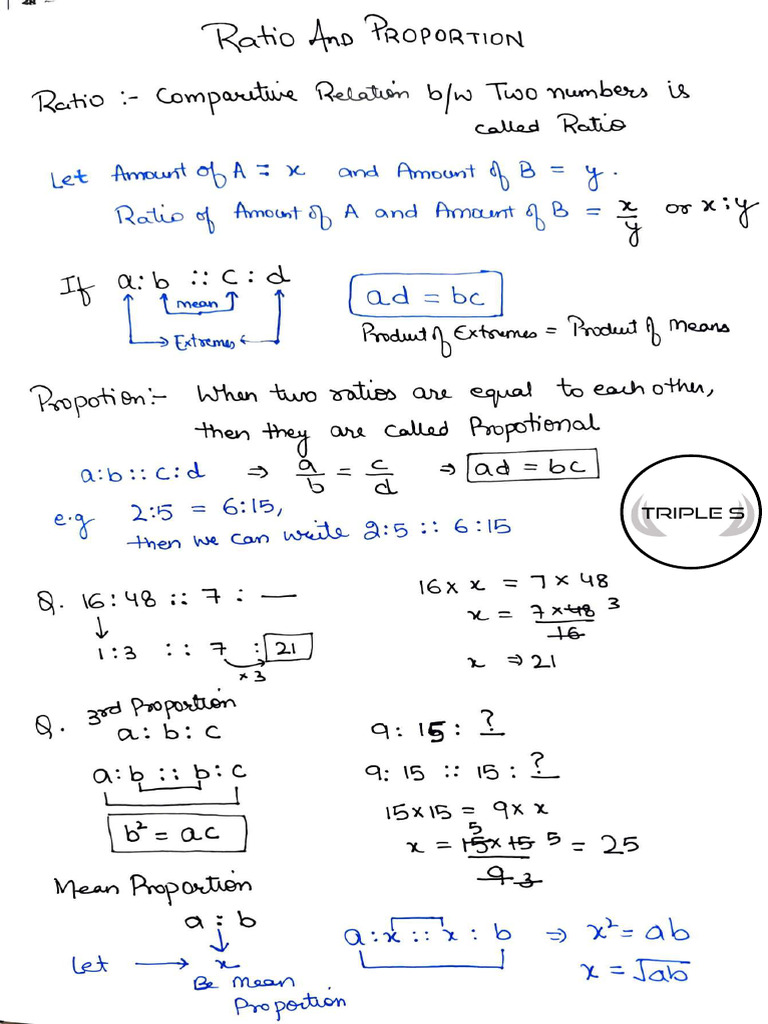 Ratio And Proportion
Ratio :- Comparitive Relation b/w Two numbers is
called Ratio
Let Amount of A = x and Amount of B = y.
Ratio of Amount of A and Amount of B = x/y or x:y
If a:b :: c:d
mean
Extremes
ad = bc
Product of Extremes = Product of Means
Propotion:- When two ratios are equal to each other,
then they are called Propotional
a:b::c:d ⇒ a/b = c/d ⇒ ad = bc
e.g 2:5 = 6:15,
then we can write 2:5 :: 6:15
TRIPLE S
Q. 16:48 :: 7 : —
↓
1:3 :: 7 : 21
×3
16 × x = 7 × 48
x = 7 × 48 3
16
x ⇒ 21
Q. 3rd Proportion
a : b : c
a:b :: b:c
b² = ac
9 : 15 : ?
9 : 15 :: 15 : ?
15 × 15 = 9 × x
5
x = 15 × 15 5 = 25
9 3
Mean Proportion
a : b
↓
Let → x
Be Mean
Proportion
a : x :: x : b ⇒ x² = ab
x = √ab